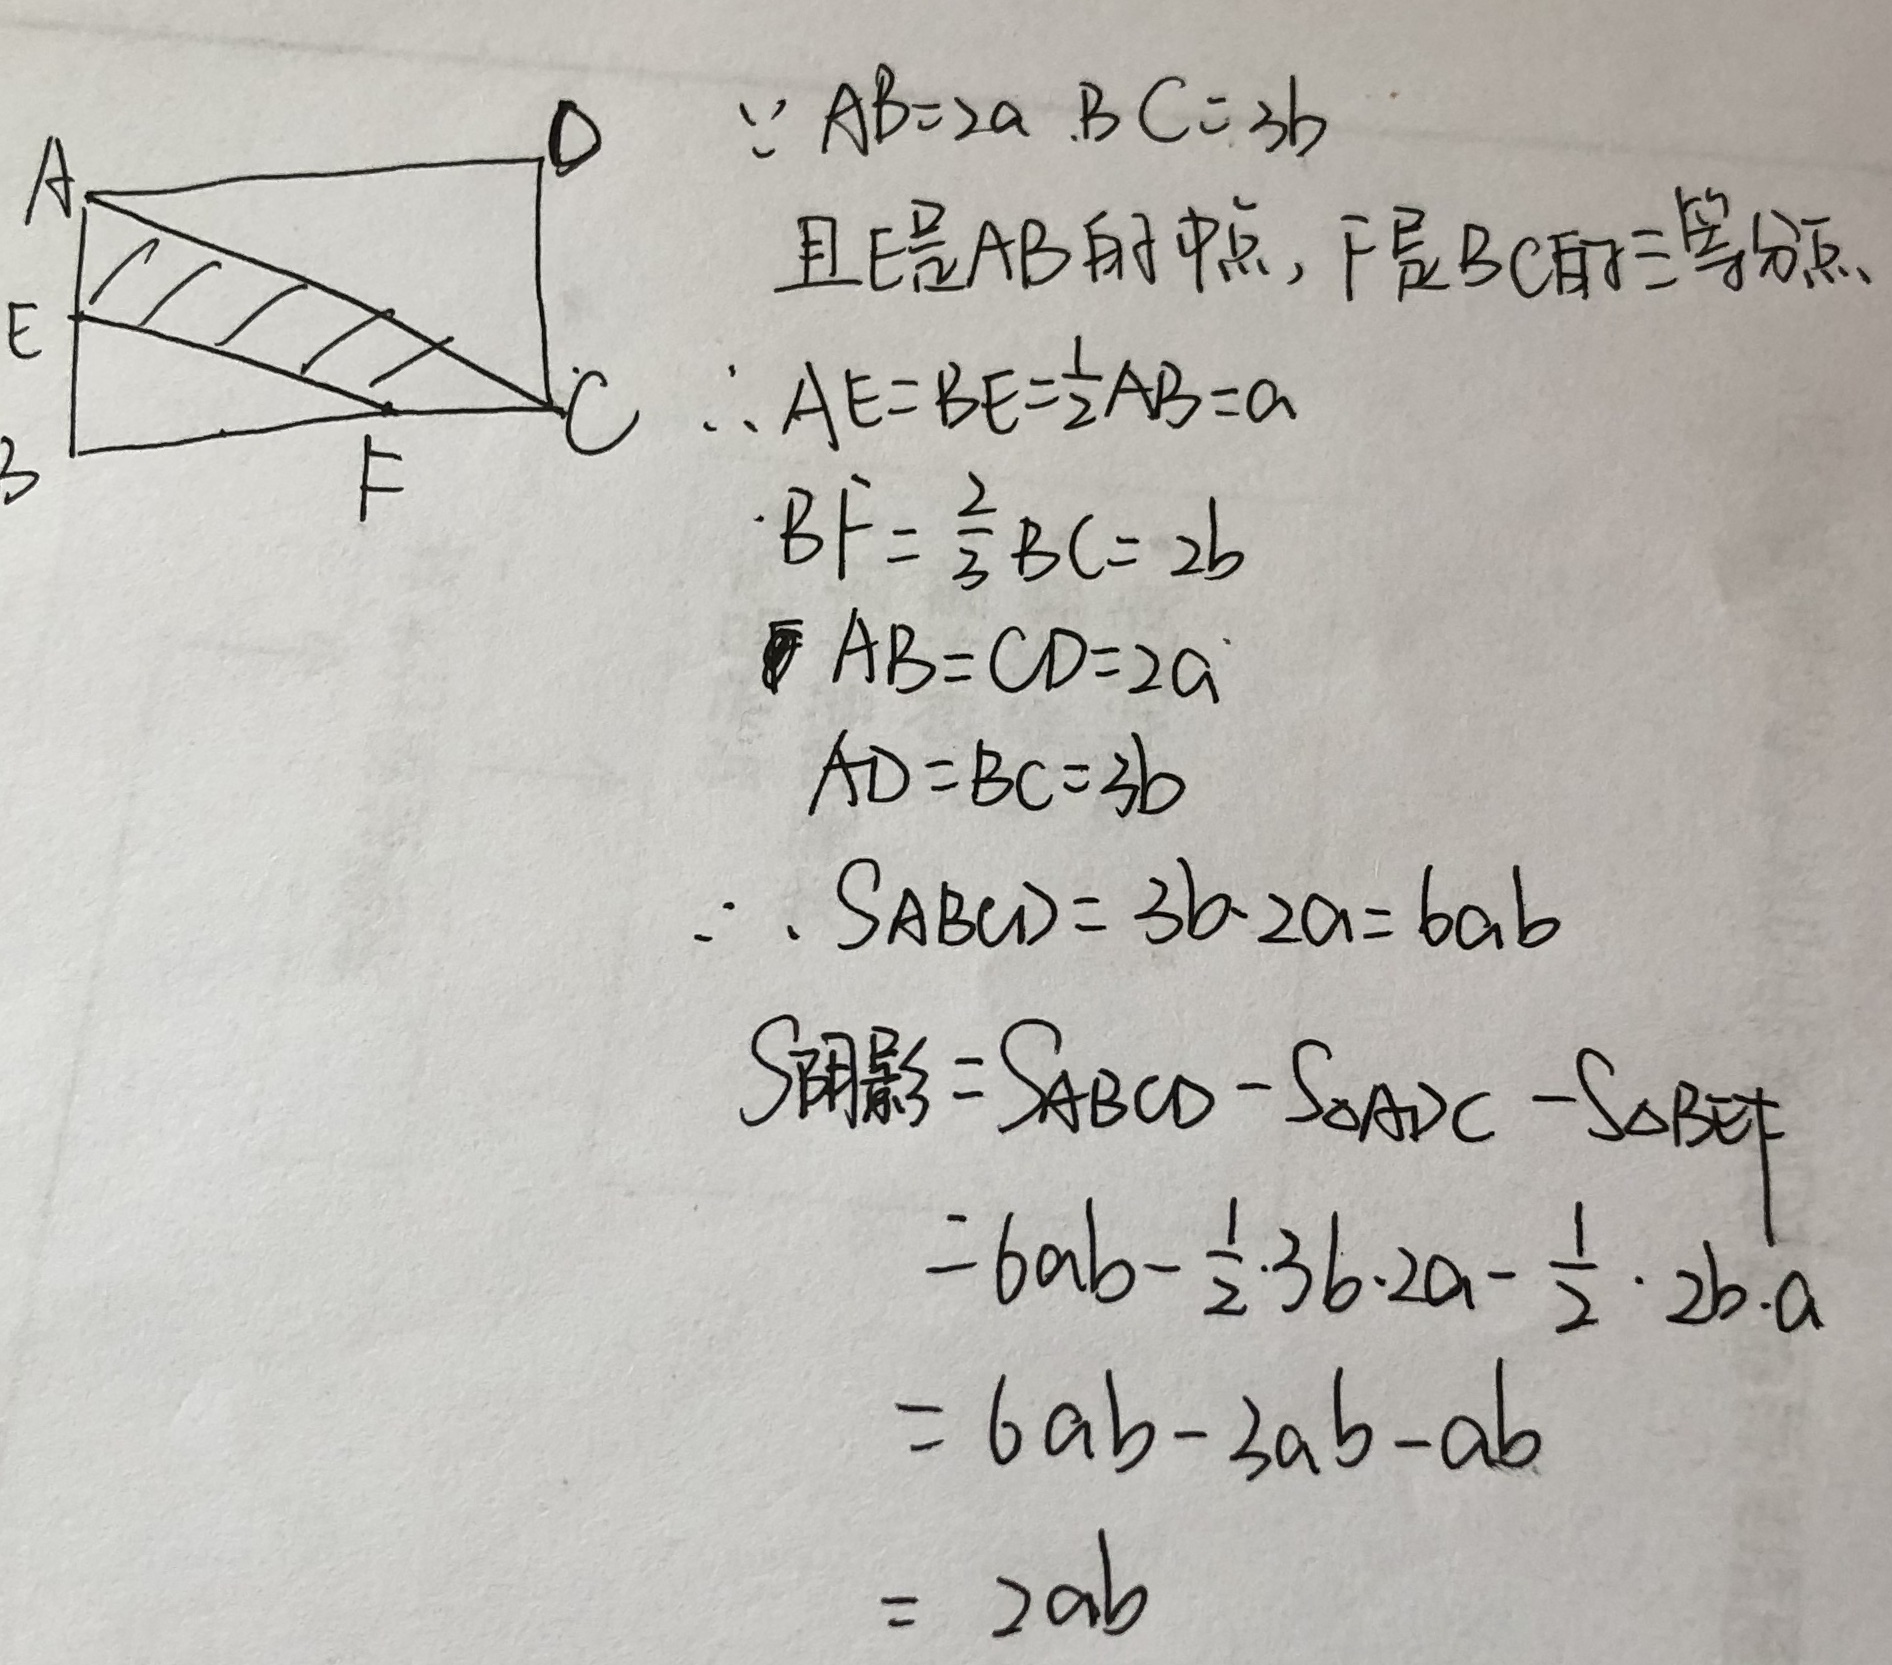 A
D
E
B
F
C
∵ AB=2a BC=3b
且E是AB的中点,F是BC的三等分点、
∴ AE=BE=1/2AB=a
BF=2/3BC=2b
AB=CD=2a
AD=BC=3b
∴ SABCD=3b·2a=6ab
S阴影=SABCD-S△ADC-S△BEF
=6ab-1/2·3b·2a-1/2·2b·a
=6ab-3ab-ab
=2ab